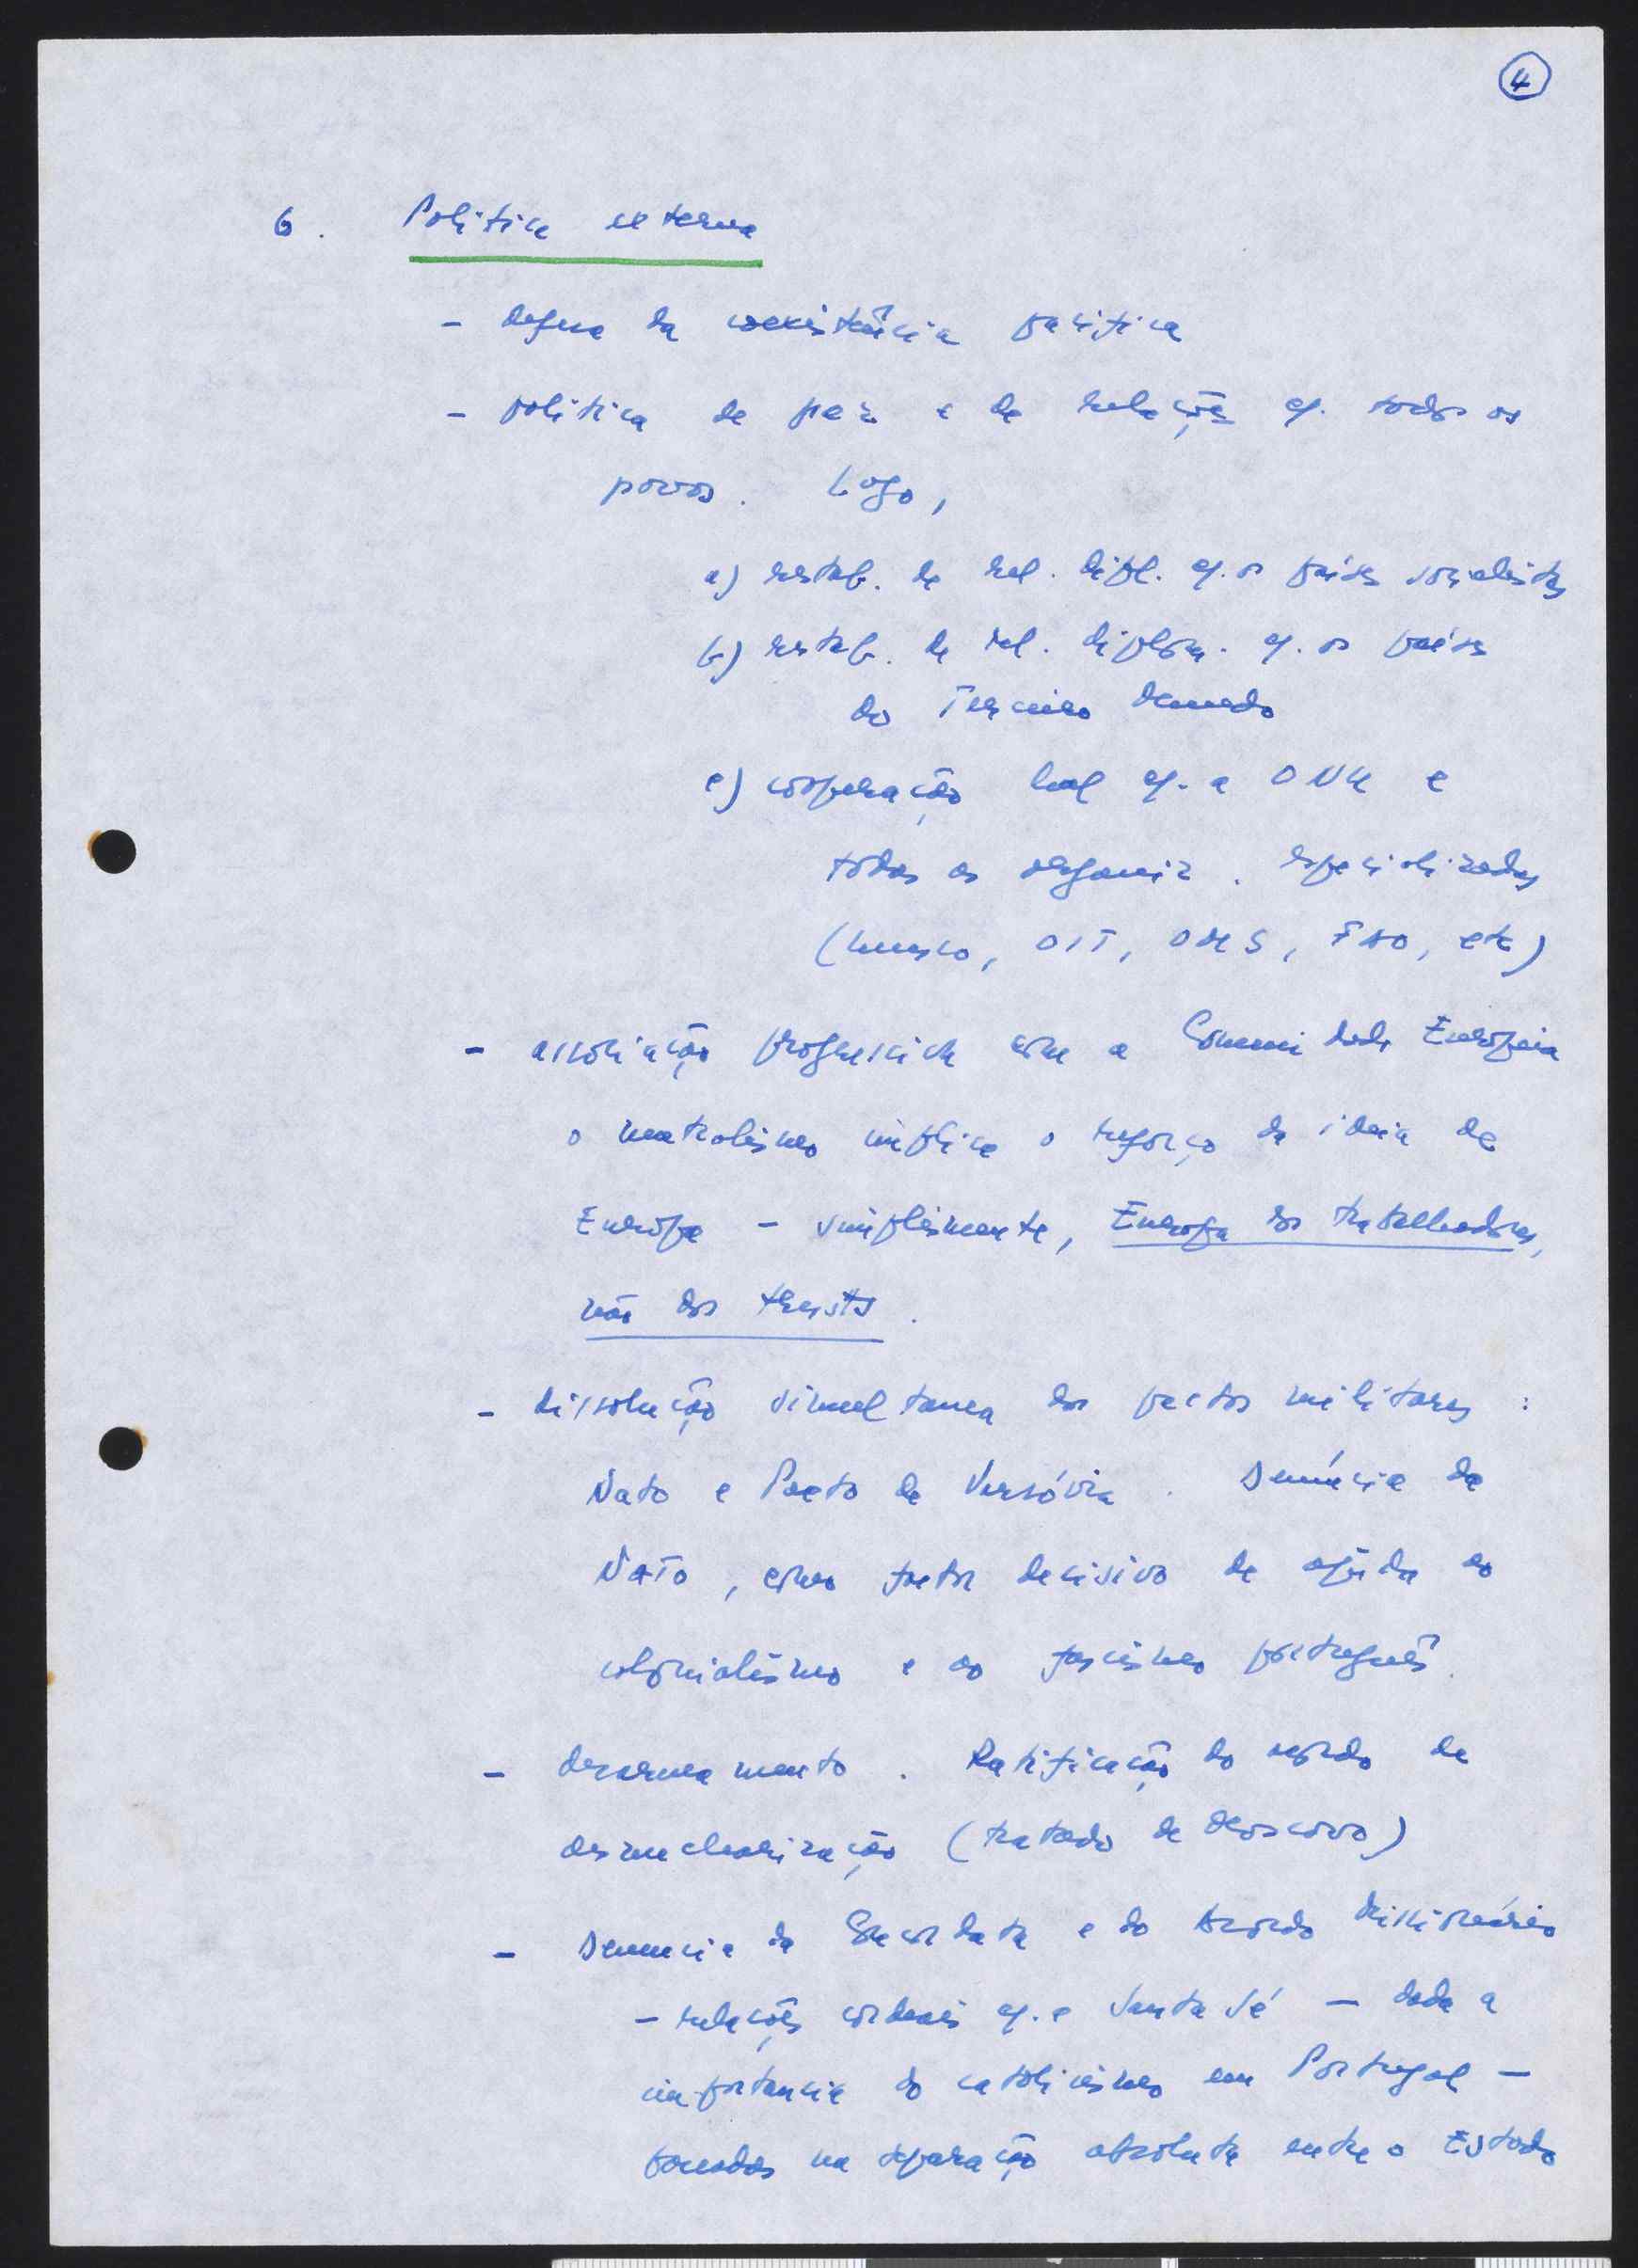 4
6. Politica externa
- defesa da coexistência pacifica
- politica de paz e de relações c/. todos os
povos. Logo,
a) restab. de rel. dipl. c/. os países socialistas
b) restab. de rel. diplom. c/. os países
do Terceiro Mundo
c) cooperação leal c/. a ONU e
todos os organiz. especializados
(Unesco, OIT, OMS, FAO, etc)
- associação progressiva com a Comunidade Europeia
o neutralismo implica o reforço da ideia de
Europa - simplesmente, Europa dos trabalhadores,
não dos trusts.
- dissolução simultanea dos pactos militares :
Nato e Pacto de Varsóvia. Denúncia da
NATO, como factor decisivo de ajuda ao
colonialismo e ao fascismo português.
- desarmamento. Ratificação do acordo de
desnuclearização (tratado de Moscovo)
- Denuncia da Concordata e do Acordo Missionário
- relações cordeais c/. a Santa Sé - dada a
importancia do catolicismo em Portugal -
na separação absoluta entre o Estado